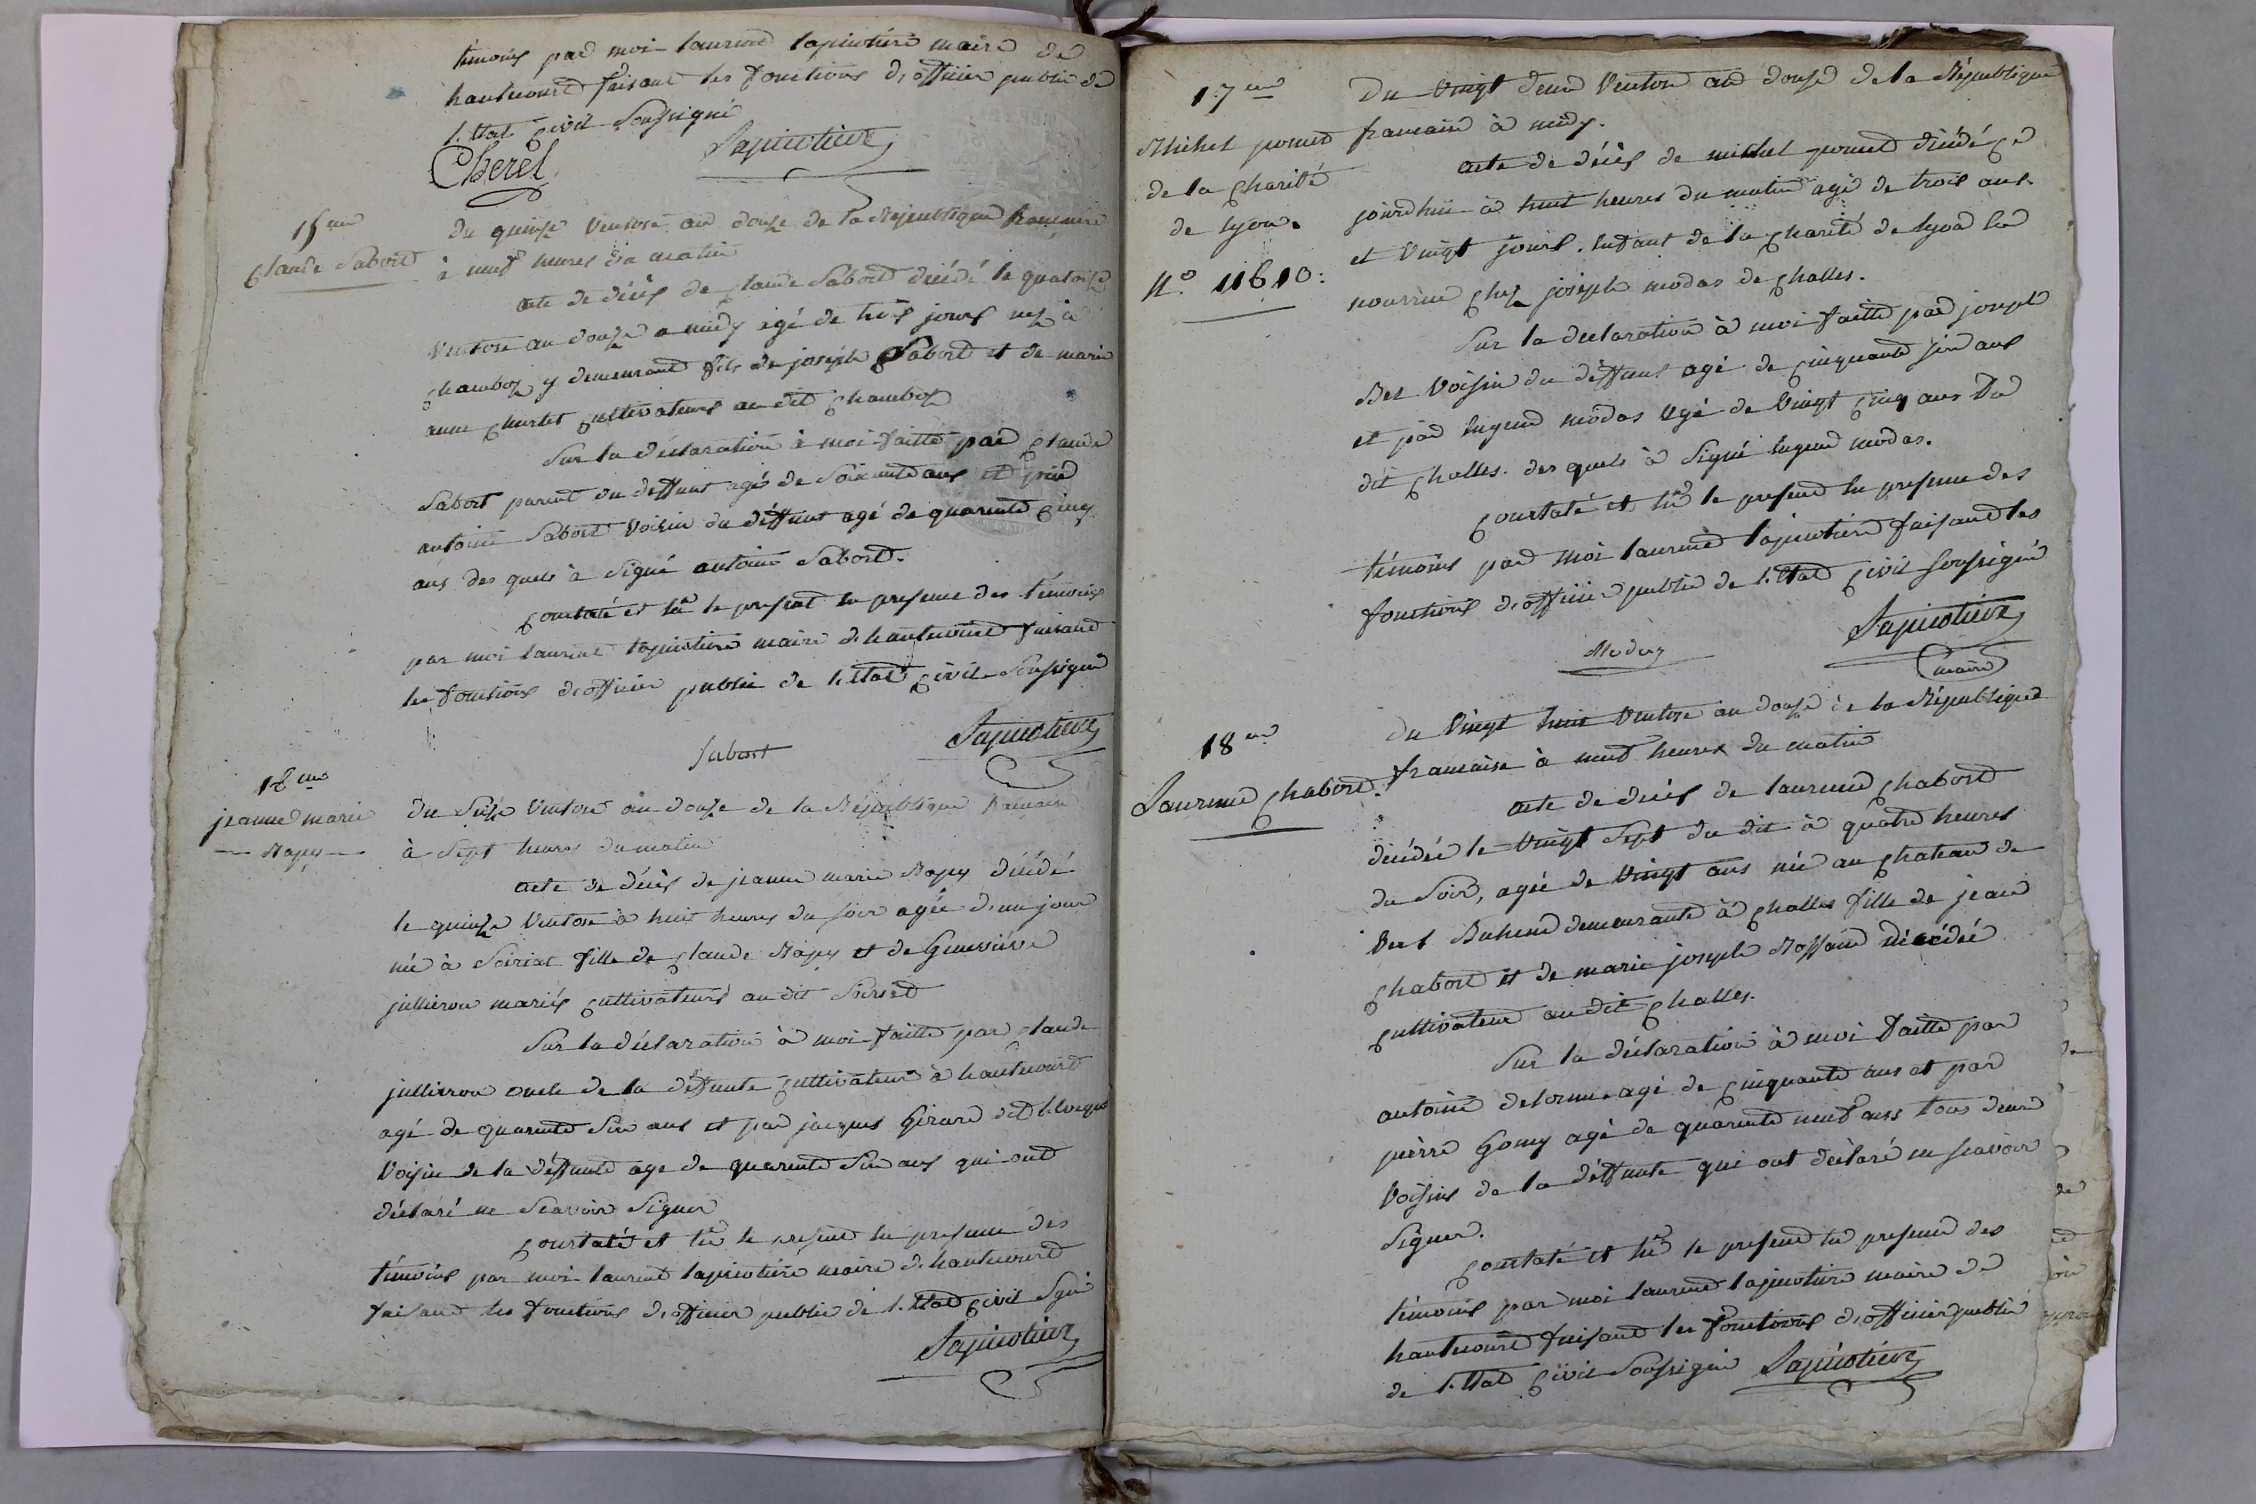 témoins par moi laurent lapicotiere maire de
hautecourt faisant les fonctions d'officier public de
l'Etat Civil Soussigné
Cherel Lapicotiere
15me
Claude Sabort
Du quinze Ventose an douze de la République francaise
à neuf heures du matin
acte de décès de Claude Sabort décédé le quatorze
Ventose an douze a midy agé de trois jours né à
Chamboz y demeurant fils de joseph Sabort et de marie
anne cultivateurs au dit Chamboz
Sur la déclaration à moi faitte par Claude
Sabort parent du deffunt agé de Soixante ans et par
antoine Sabort Voisin du déffunt agé de quarente Cinq
ans des quels à Signé antoine Sabort.
Constaté et lu le present en presence des témoins
par moi laurent lapicotiere maire de hautecourt faisant
les fonctions d'officier public de l'Etat Civil Soussigné
Sabort Lapicotiere
16me
jeanne marie
Du Seize Ventose an douze de la République francaise
à Sept heures du matin
acte de décès de jeanne marie décédé
le quinze Ventose à huit heures du soir agée d'un jour
né à Soiriat fille de Claude et de Geneviève
jullieron mariés Cultivateurs au dit
Sur la déclaration à moi faitte par Claude
jullieron oncle de la déffunte Cultivateur à hautecourt
agé de quarente Six ans et par jacques Girard dit
Voisin de la déffunte age de quarente Six ans qui ont
déclaré ne Scavoir Signer
Constaté et lu le present en presence des
témoins par moi laurent lapicotiere maire de hautecourt
faisant les fonctions d'officier public de l'Etat Civil Sgné
Lapicotiere
17me
Michel
de la Charité
de Lyon.
N.° 11610:
Du Vingt deux Ventose an douze de la République
francaise à midy.
acte de décès de michel décédé Ce
jourdhui à huit heures du matin agé de trois ans
et Vingt jours. Enfant de la Charité de Lyon En
nourrice Chez joseph modas de Challes.
Sur la declaration à moi faitte par joseph
Voisin du déffunt agé de Cinquante Six ans
et par Eugene modas agé de Vingt Cinq ans Du
dit Challes. des quels à Signé Eugene modas.
Constaté et lu le present En presence des
témoins par moi laurent lapicotiere faisant les
fonctions d'officier public de l'Etat Civil Soussigné
Lapicotiere
maire
18me
Laurence Chabord.
Du Vingt huit Ventose an douze de la République
francaise à neuf heures du matin
acte de décès de laurence Chabord
décédée le Vingt Sept du dit à quatre heures
du Soir, agée de Vingt ans née au Chateau de
demeurante à Challes fille de jean
Chabord et de marie joseph décédée
Cultivateur au dit Challes.
Sur la déclaration à moi faitte par
antoine delorme agé de Cinquante ans et par
pierre Gomy agé de quarente neuf ans tous deux
Voisins de la déffunte qui ont déclaré ne scavoir
Signer.
Constaté et lu le present En presence des
témoins par moi laurent lapicotiere maire de
hautecourt faisant les fonctions d'officier public
de l'Etat Civil Soussigné Lapicotiere